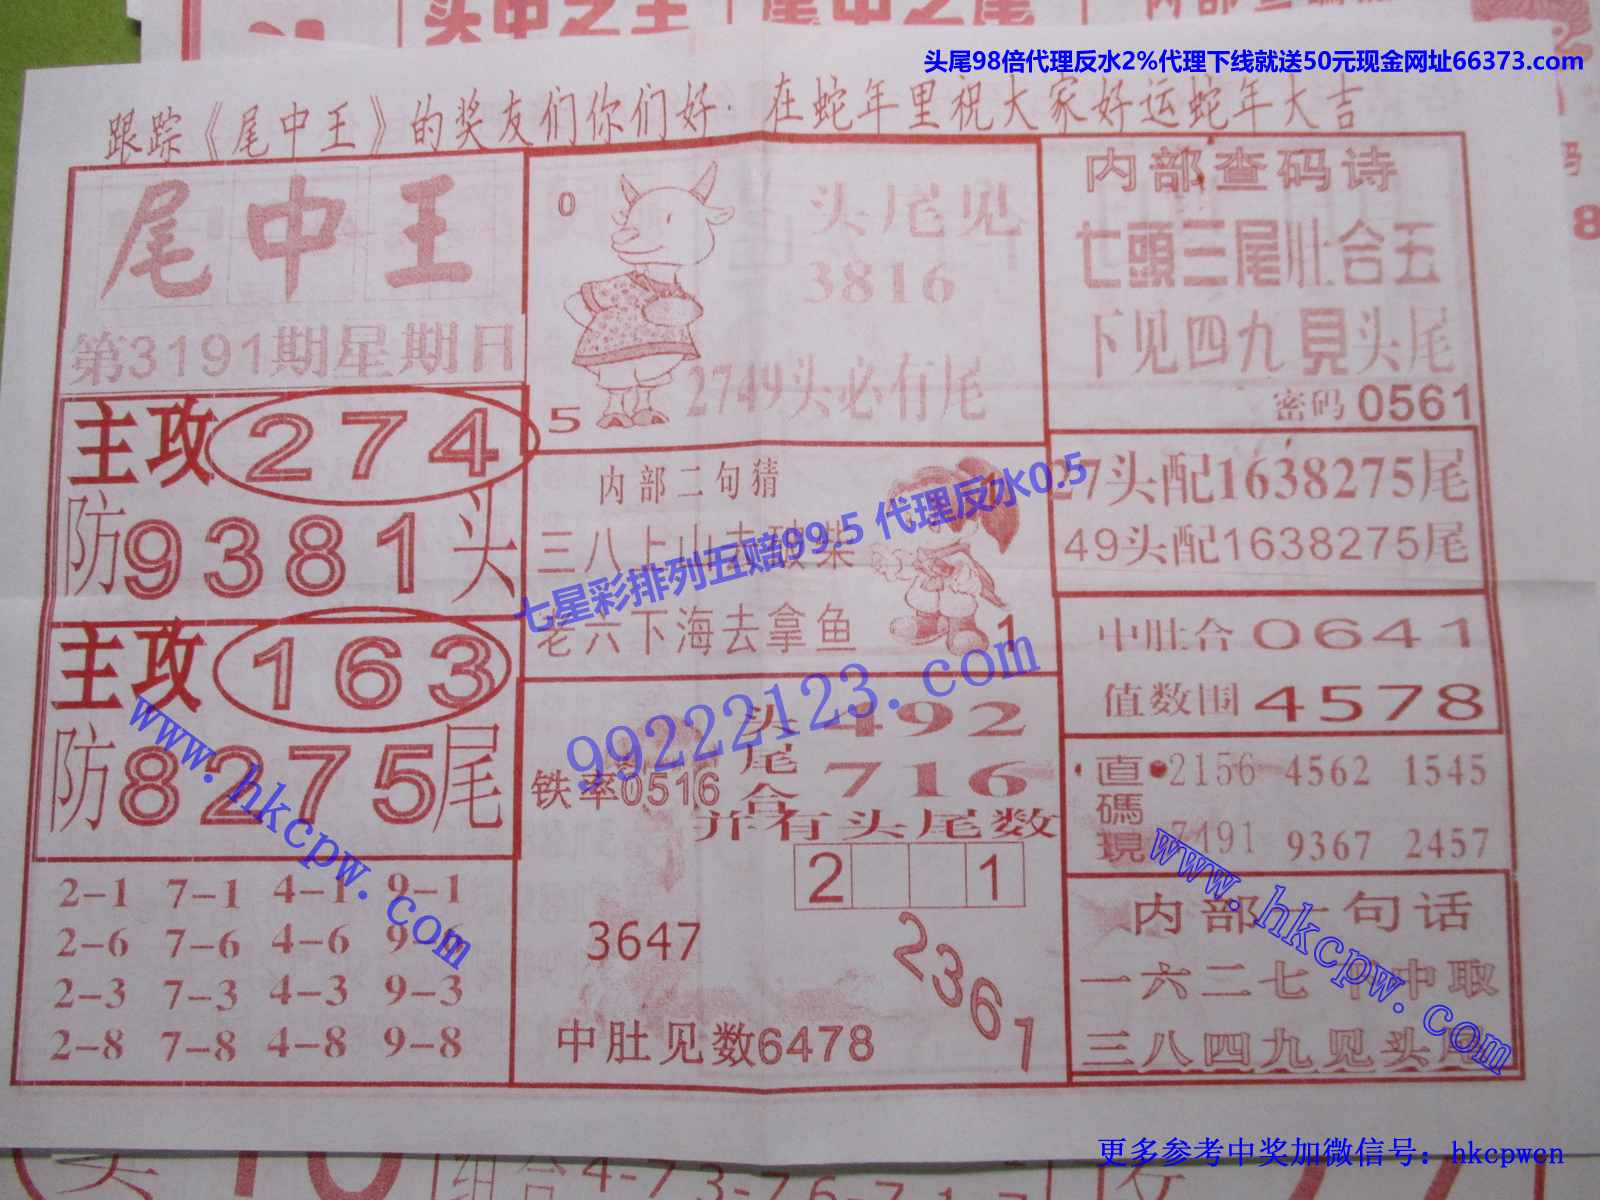 头尾98倍代理反水2%代理下线就送50元现金网址66373.com
跟踪《尾中王》的奖友们你们好：在蛇年里祝大家好运蛇年大吉
尾中王
第3191期星期日
主攻274
防9381头
主攻163
防8275尾
2-1 7-1 4-1 9-1
2-6 7-6 4-6 9-6
2-3 7-3 4-3 9-3
2-8 7-8 4-8 9-8
0
头尾见
3816
2749头必有尾
5
内部二句猜
三八上山去 柴
老六下海去拿鱼
1
七星彩排列五赔99.5 代理反水0.5
99222123.com
头492
尾
合716
铁率0516
并有头尾数
2 1
3647
2361
中肚见数6478
内部查码诗
七頭三尾肚合五
下见四九見头尾
密码0561
27头配1638275尾
49头配1638275尾
中肚合0641
值数围4578
直碼現
2156 4562 1545
7491 9367 2457
内部一句话
一六二七 中取
三八四九见头尾
www.hkcpw.com
www.hkcpw.com
组合4-7
更多参考中奖加微信号：hkcpwcn